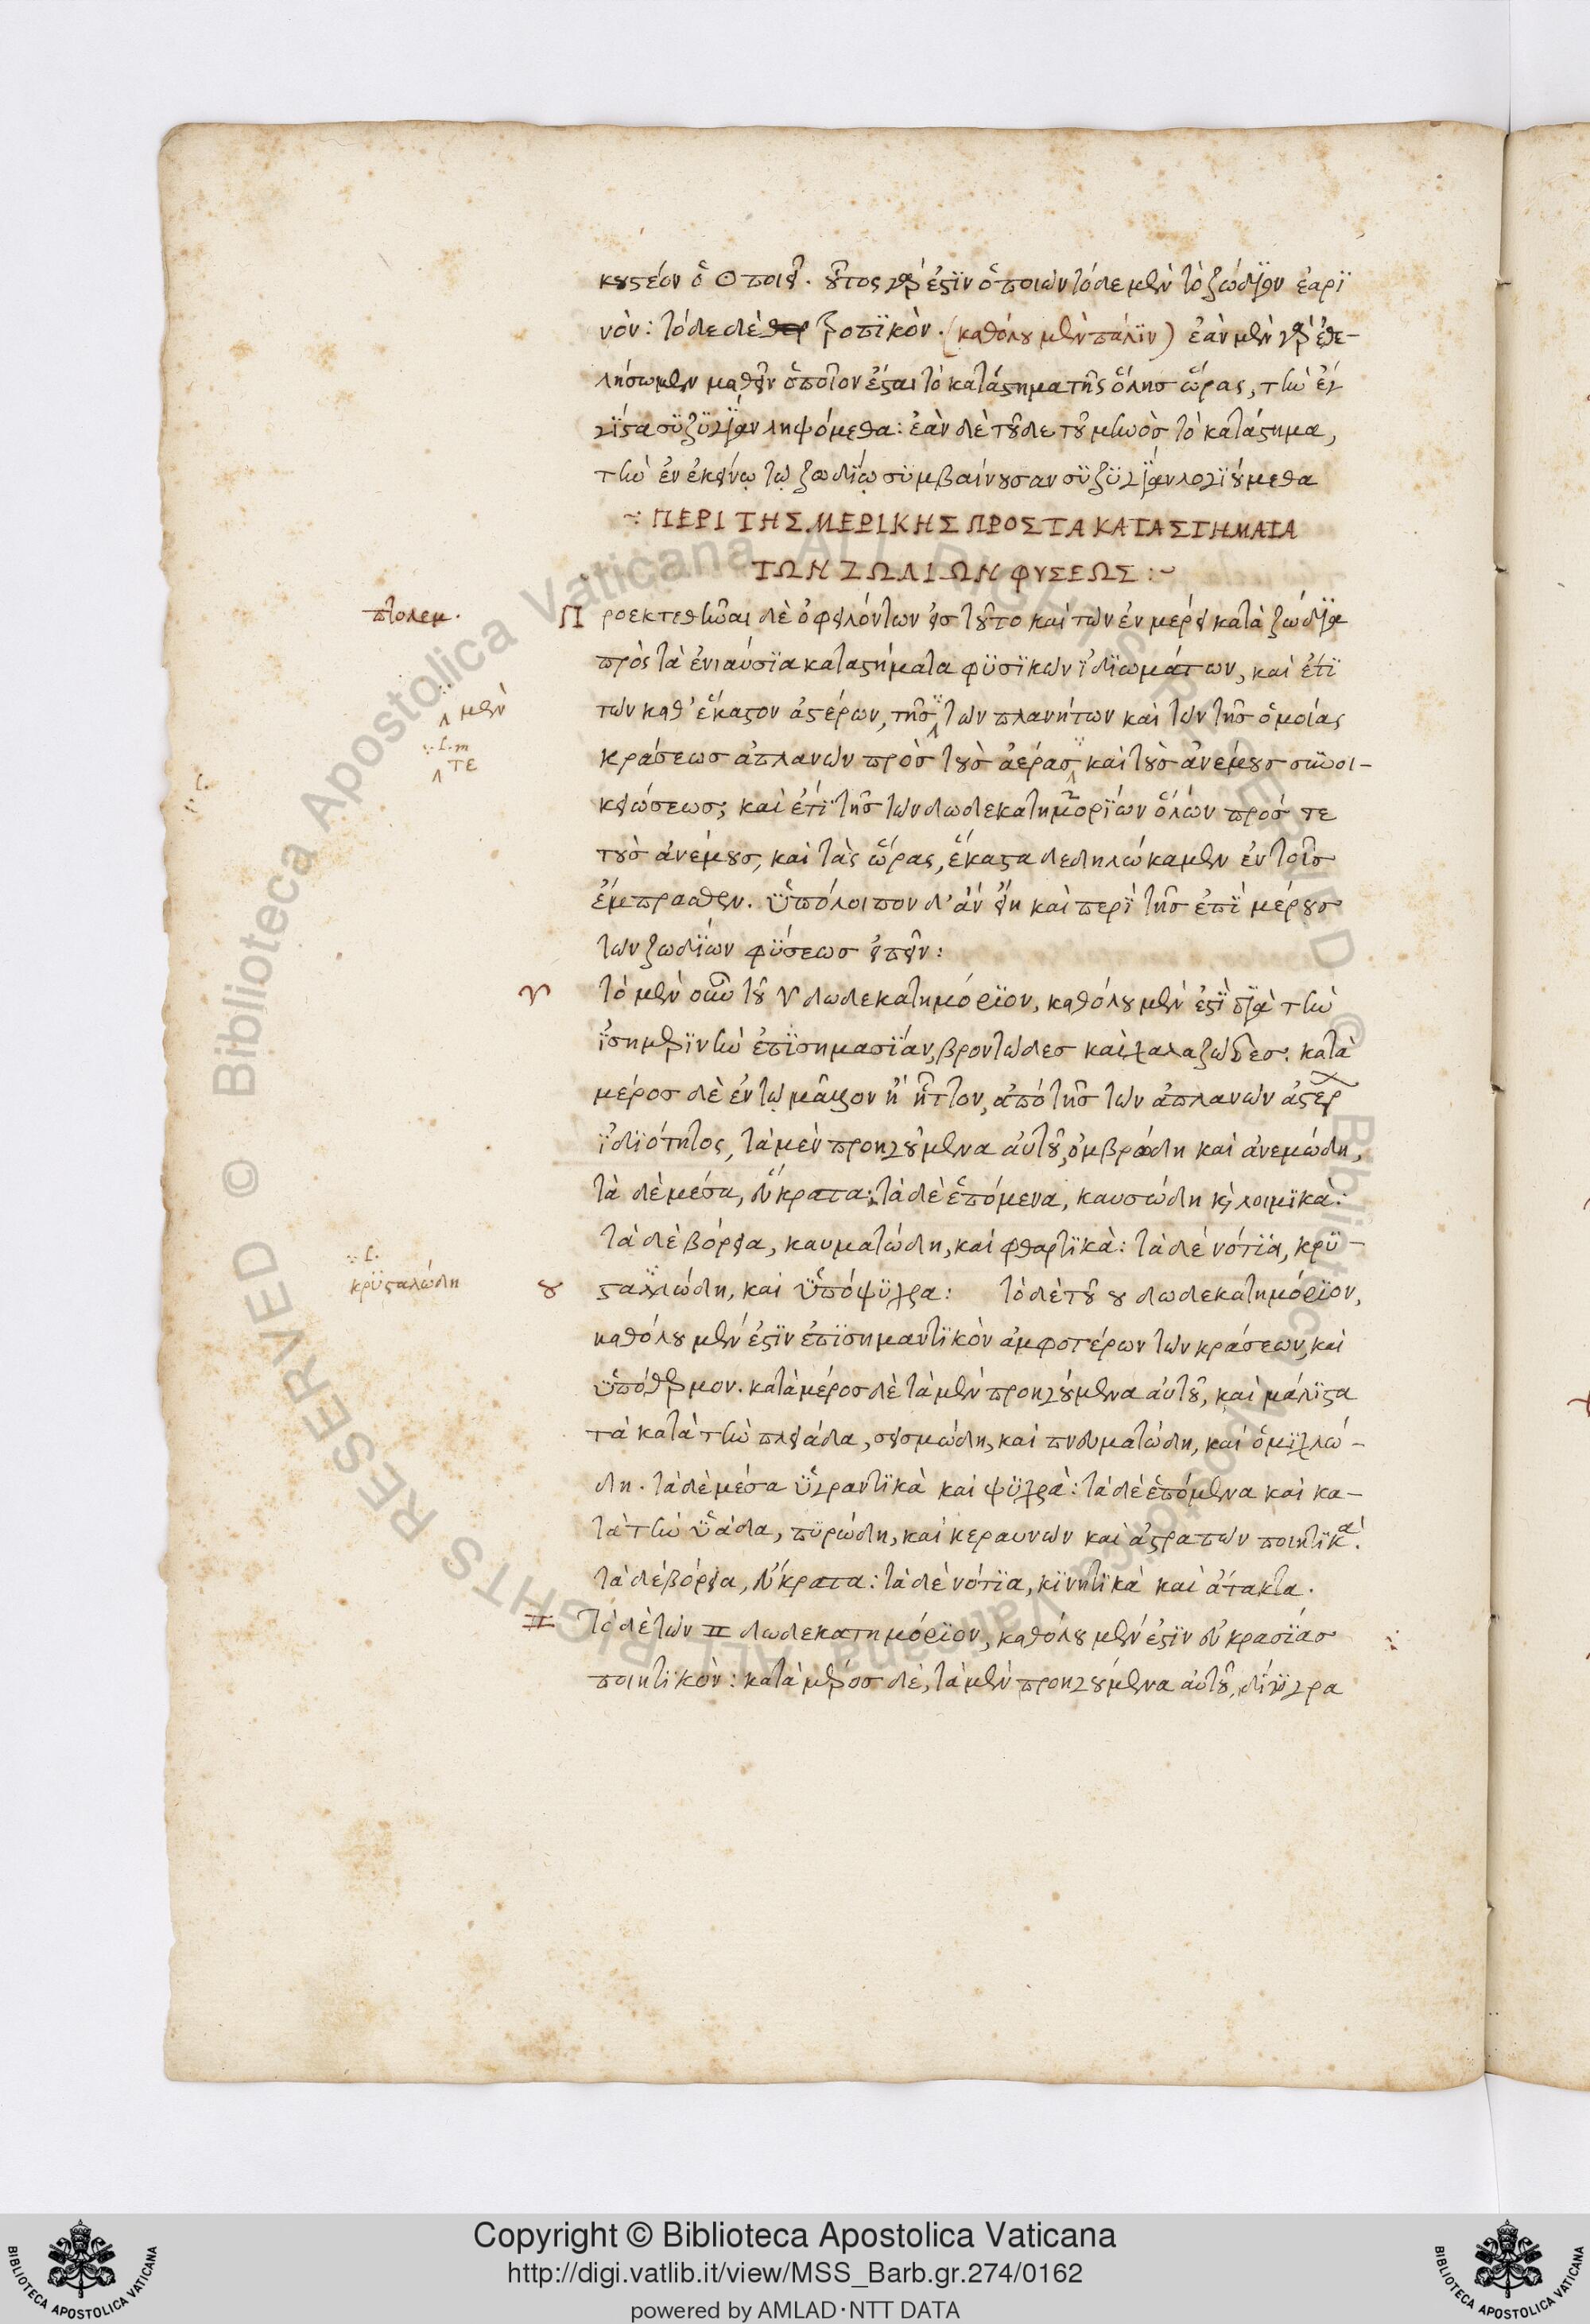 κουστέον ὁ ☉ ποιεῖ. οὗτος γάρ ἐστιν ὁ ποιῶν τόδε μὲν τὸ ζώδιον ἐαρι
νὸν: τόδε δὲ τροπικὸν. (καθόλου μὲν πάλιν) ἐὰν μὲν γὰρ ἐθε-
λήσωμεν μαθεῖν ὁποῖον ἔσται τὸ κατάστημα τῆς ὅλησ ὥρας, τὴν ἔγ
γιστα συζυγίαν ληψόμεθα: ἐὰν δὲ τοῦδε τοῦ μηνὸσ τὸ κατάστημα,
τὴν ἐν ἐκείνῳ τῷ ζωδίῳ συμβαίνουσαν συζυγίαν λογιούμεθα
∹ ΠΕΡΙ ΤΗΣ ΜΕΡΙΚΗΣ ΠΡΟΣ ΤΑ ΚΑΤΑΣΤΗΜΑΤΑ
ΤΩΝ ΖΩΔΙΩΝ ΦΥΣΕΩΣ :~
πτολεμ.
Προεκτεθῆναι δὲ ὀφειλόντων εἰσ τοῦτο καὶ τῶν ἐν μέρει κατὰ ζώδια
πρὸς τὰ ἐνιαύσια καταστήματα φυσικῶν ἰδιωμάτων, καὶ ἔτι
τῶν καθ' ἕκαστον ἀστέρων, τῆσ τῶν πλανήτων καὶ τῶν τῆσ ὁμοίας
μὲν
κράσεωσ ἀπλανῶν πρὸσ τοὺσ ἀέρασ καὶ τοὺσ ἀνέμουσ συνοι-
ΤΕ
κειώσεωσ; καὶ ἔτι τῆσ τῶν δωδεκατημορίων ὅλων πρόσ τε
τοὺσ ἀνέμουσ, καὶ τὰς ὥρας, ἕκαστα δεδηλώκαμεν ἐν τοῖσ
ἔμπροσθεν. ὑπόλοιπον δ' ἂν εἴη καὶ περὶ τῆσ ἐπὶ μέρουσ
τῶν ζωδίων φύσεωσ εἰπεῖν:
♈ τὸ μὲν οὖν τοῦ ♈ δωδεκατημόριον, καθόλου μὲν ἐστὶ διὰ τὴν
ἰσημερινὴν ἐπισημασίαν, βροντῶδεσ καὶ χαλαζῶδεσ: κατὰ
μέροσ δὲ ἐν τῷ μᾶλλον ἢ ἧττον, ἀπὸ τῆσ τῶν ἀπλανῶν ἀστερ
ἰδιότητος, τὰ μὲν προηγούμενα αὐτοῦ, ὀμβρώδη καὶ ἀνεμώδη,
τὰ δὲ μέσα, εὔκρατα: τὰ δὲ ἑπόμενα, καυσώδη κὶ λοιμικὰ:
τὰ δὲ βόρεια, καυματώδη, καὶ φθαρτικὰ: τὰ δὲ νότια, κρυ-
κρυσταλώδη
♉ σταλλώδη, καὶ ὑπόψυχρα: τὸ δὲ τοῦ ♉ δωδεκατημόριον,
καθόλου μὲν ἐστιν ἐπισημαντικὸν ἀμφοτέρων τῶν κράσεων, καὶ
ὑπόθερμον. κατὰ μέροσ δὲ τὰ μὲν προηγούμενα αὐτοῦ, καὶ μάλιστα
τὰ κατὰ τὴν πλειάδα, σεισμώδη, καὶ πνευματώδη, καὶ ὁμιχλώ-
δη. τὰ δὲ μέσα ὑγραντικὰ καὶ ψυχρὰ: τὰ δὲ ἑπόμενα καὶ κα-
τὰ τὴν ὑάδα, πυρώδη, καὶ κεραυνῶν καὶ ἀστραπῶν ποιητικά.
τὰ δὲ βόρεια, εὔκρατα: τὰ δὲ νότια, κινητικὰ καὶ ἄτακτα.
♊ τὸ δὲ τῶν ♊ δωδεκατημόριον, καθόλου μὲν ἐστιν εὐκρασίασ
ποιητικὸν: κατὰ μέροσ δὲ, τὰ μὲν προηγούμενα αὐτοῦ, δίυγρα
© Biblioteca Apostolica Vaticana ALL RIGHTS RESERVED
Copyright © Biblioteca Apostolica Vaticana
http://digi.vatlib.it/view/MSS_Barb.gr.274/0162
powered by AMLAD·NTT DATA
BIBLIOTECA APOSTOLICA VATICANA
BIBLIOTECA APOSTOLICA VATICANA